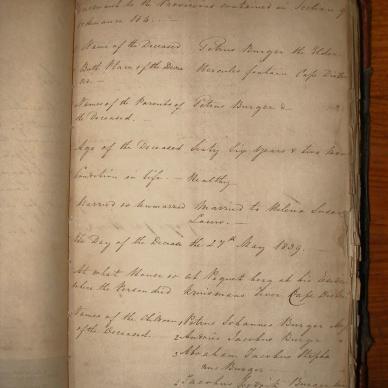 Pursuant to the Provisions contained in Section 9
Ordinance 104. —
Name of the Deceased Petrus Burger the Elder
Birth Place of the Decea- Hercules fontein Cape District
sed. —
Names of the Parents of Petrus Burger &
the Deceased. —
Age of the Deceased Sixty Six Years & two
Condition in life. — Healthy
Married or Unmarried Married to Helena Susan
Louw. —
The Day of the Decease the 27th May 1839.
At what House or at Piquet berg at his
where the Person died River Cape District
Names of the Children 1 Petrus Johannes Burger
of the Deceased. — 2 Andries Jacobus Burger
3 Abraham Jacobus Stepha
nus Burger
4 Jacobus Burger